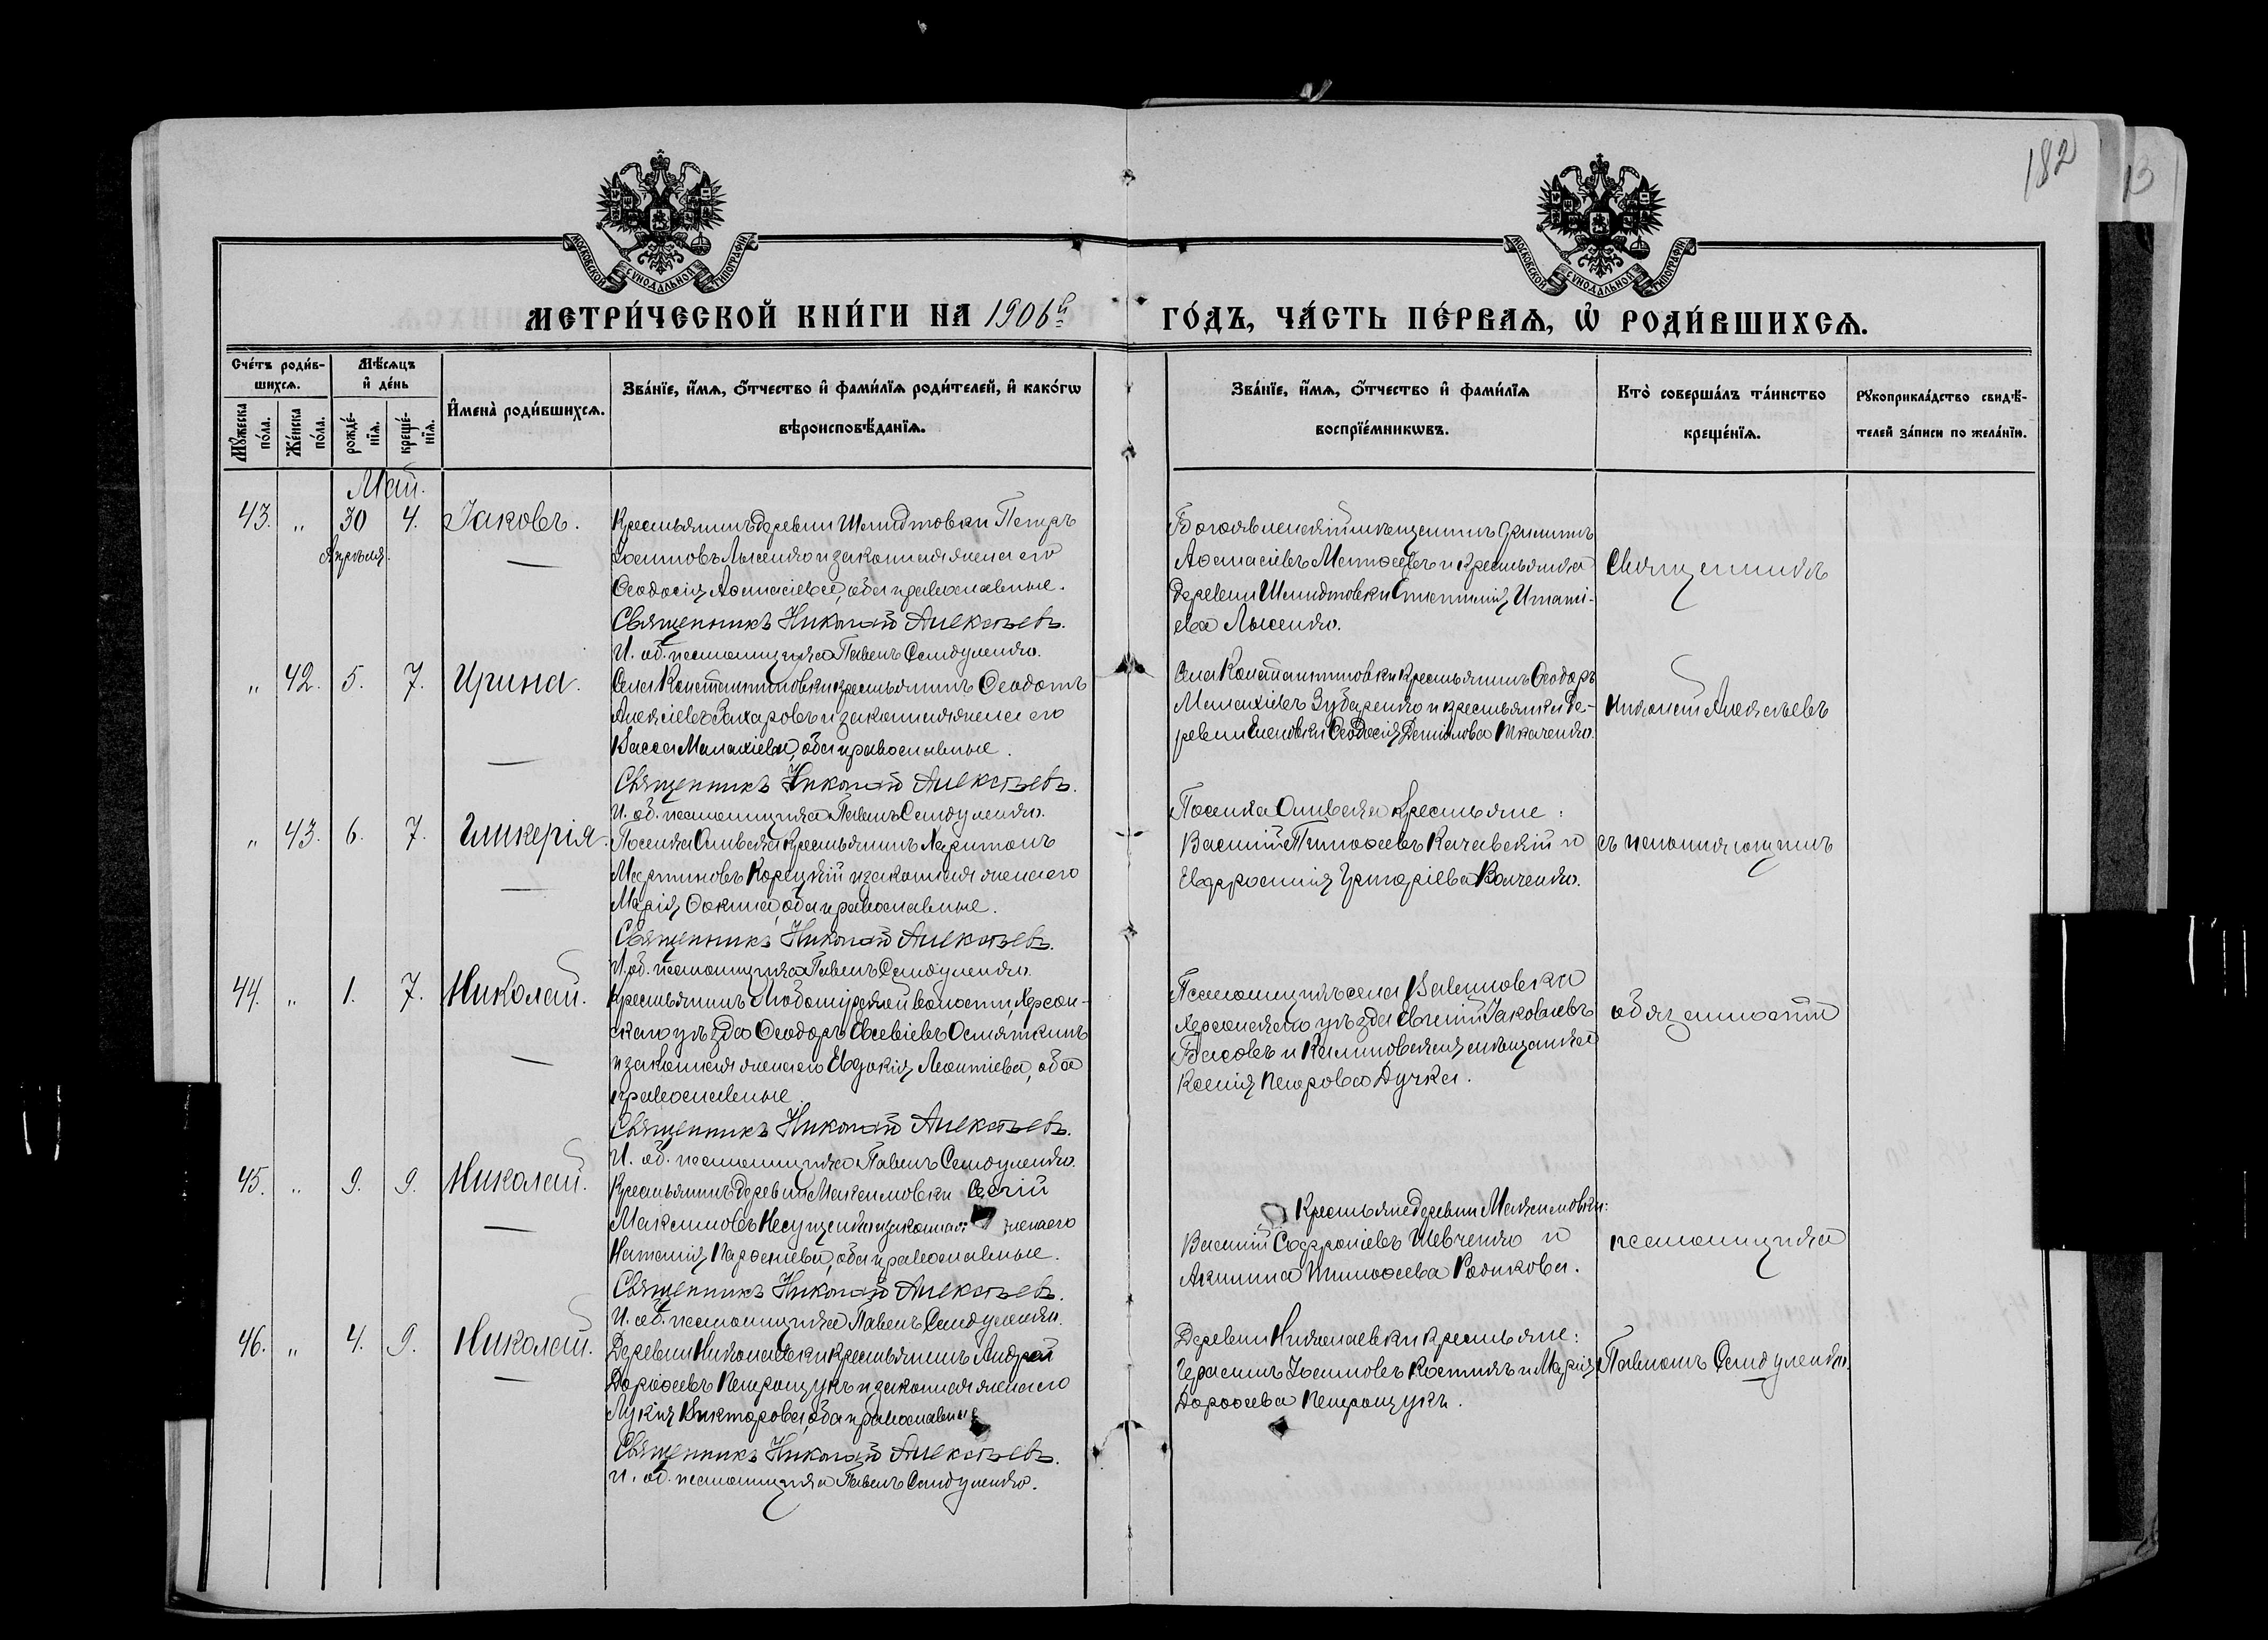 182
13
МОСКОВСКОЙ СУНОДАЛЬНОЙ ТИПОГРАФІИ
МОСКОВСКОЙ СУНОДАЛЬНОЙ ТИПОГРАФІИ
МЕТРИ́ЧЕСКОЙ КНИ́ГИ НА 1906й
ГО́ДЪ, ЧА́СТЬ ПЕ́РВАѦ, Ѡ҆ РОДИ́ВШИХСѦ.
Сче́тъ роди́в-
шихсѧ.
Мꙋ́жеска
по́ла.
Же́нска
по́ла.
Мѣ́сѧцъ
и҆ де́нь
рожде́-
нїѧ.
креще́-
нїѧ.
И҆мена̀ роди́вшихсѧ.
Зва́нїе, и҆́мѧ, ѻ҆́тчество и҆ фами́лїѧ роди́телей, и҆ како́гѡ
вѣроисповѣ́данїѧ.
Зва́нїе, и҆́мѧ, ѻ҆́тчество и҆ фами́лїѧ
воспрїе́мникѡвъ.
Кто̀ соверша́лъ та́инство
креще́нїѧ.
Рꙋкоприкла́дство свидѣ́-
телей за́писи по жела́нїю.
Май.
43. „ 30 4. Іаковъ.
Апрѣля.
Крестьянинъ деревни Шмидтовки Петръ
Іоанновъ Лысенко и законная жена его
Ѳеодосія Аѳанасіева, оба православные.
Священникъ Николай Алексѣевъ.
И. об. псаломщика Павелъ Сандуленко.
Богоявленскій мѣщанинъ
Аѳанасіевъ и крестьянка
деревни Шмидтовки Игнаті-
ева Лысенко.
Священникъ
„ 42. 5. 7. Ирина.
Села Константиновки крестьянинъ Ѳеодотъ
Алексіевъ Захаровъ и законная жена его
Васса Малахіева, оба православные.
Священникъ Николай Алексѣевъ.
И. об. псаломщика Павелъ Сандуленко.
Села Константиновки крестьянинъ Ѳеодоръ
Малахіевъ Зубаренко и крестьянка де-
ревни Еленовки Ѳеодосія Данилова Ткаченко.
Николай Алексѣевъ
„ 43. 6. 7. Гликерія.
Поселка Ольвска крестьянинъ Харитонъ
Мартиновъ Корецкій и законная жена его
Марія Ѳокина, оба православные.
Священникъ Николай Алексѣевъ.
И. об. псаломщика Павелъ Сандуленко.
Поселка Ольвска крестьяне:
Василій Тимоѳеевъ Качавскій и
Евфросинія Григоріева Волченко.
съ исполняющимъ
44. „ 1. 7. Николай.
Крестьянинъ Любомирской волости, Херсон-
скаго уѣзда Ѳеодоръ Евсевіевъ Осмяткинъ
и законная жена его Евдокія Леонтіева, оба
православные.
Священникъ Николай Алексѣевъ.
И. об. псаломщика Павелъ Сандуленко.
Псаломщикъ села
Херсонскаго уѣзда Евгеній Іаковлевъ
Басовъ и мѣщанка
Ксенія Петрова Дучка.
обязанности
45. „ 9. 9. Николай.
Крестьянинъ деревни Максимовки Сергій
Максимовъ Несущенко и законная жена его
Наталія Парѳеніева, оба православные.
Священникъ Николай Алексѣевъ.
И. об. псаломщика Павелъ Сандуленко.
Крестьяне деревни Максимовки:
Василій Софроніевъ Шевченко и
Акилина Тимоѳеева Родикова.
псаломщика
46. „ 4. 9. Николай.
Деревни Николаевки крестьянинъ Андрей
Дороѳеевъ Петращукъ и законная жена его
Лукія Викторова, оба православные
Священникъ Николай Алексѣевъ.
И. об. псаломщика Павелъ Сандуленко.
Деревни Николаевки крестьяне:
Герасимъ Іоанновъ Костюкъ и Марія
Дороѳеева Петращукъ.
Павломъ Сандуленко.